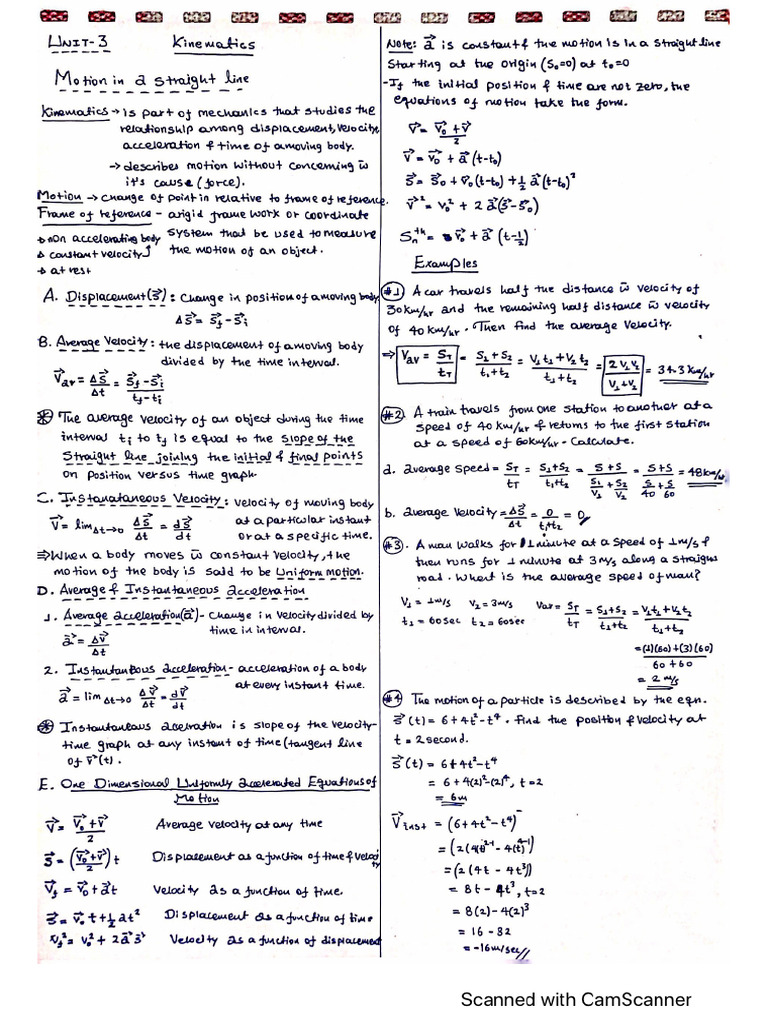 UNIT-3 Kinematics
Motion in a straight line
Kinematics → is part of mechanics that studies the
relationship among displacement, velocity,
acceleration & time of a moving body.
→ describes motion without concerning w̄
it's cause (force).
Motion → change of point in relative to frame of reference.
Frame of reference - a rigid frame work or coordinate
system that be used to measure
the motion of an object.
→ non accelerating body
→ constant velocity
→ at rest
A. Displacement (s⃗) : change in position of a moving body
Δs⃗ = s⃗f - s⃗i
B. Average Velocity : the displacement of a moving body
divided by the time interval.
V⃗av = Δs⃗/Δt = (s⃗f - s⃗i)/(tf - ti)
⊛ The average velocity of an object during the time
interval ti to tf is equal to the slope of the
straight line joining the initial & final points
on position versus time graph.
C. Instanataneous Velocity : velocity of moving body
at a particular instant
or at a specific time.
V⃗ = lim Δt→0 Δs⃗/Δt = ds⃗/dt
⇒ When a body moves w̄ constant velocity, the
motion of the body is said to be Uniform motion.
D. Average & Instantaneous acceleration
1. Average acceleration (a⃗) - change in velocity divided by
time in interval.
a⃗ = Δv⃗/Δt
2. Instantaneous acceleration - acceleration of a body
at every instant time.
a⃗ = lim Δt→0 Δv⃗/Δt = dv⃗/dt
⊛ Instantaneous acelration is slope of the velocity-
time graph at any instant of time (tangent line
of v⃗(t).
E. One Dimensional Uniformly accelerated Equations of
Motion
v⃗ = (v⃗0 + v⃗)/2 Average velocity at any time
s⃗ = ((v⃗0 + v⃗)/2) t Displacement as a function of time & velocity
v⃗f = v⃗0 + a⃗t Velocity as a function of time.
s⃗ = v⃗0t + ½at² Displacement as a function of time
vf² = v0² + 2a⃗s⃗ Velocity as a function of displacement
Note: a⃗ is constant & the motion is in a straight line
starting at the origin (S0=0) at t0=0
- If the initial position & time are not zero, the
equations of motion take the form.
v⃗ = (v⃗0 + v⃗)/2
v⃗ = v⃗0 + a⃗(t-t0)
s⃗ = s⃗0 + v0(t-t0) + ½a⃗(t-t0)²
v⃗² = v0² + 2a⃗(s⃗-s⃗0)
Sn^th = v⃗0 + a⃗(t-½)
Examples
#1 A car travels half the distance w̄ velocity of
30km/hr and the remaining half distance w̄ velocity
of 40km/hr. Then find the average velocity.
⇒ Vav = ST/tT = (S1+S2)/(t1+t2) = (V1t1+V2t2)/(t1+t2) = 2V1V2/(V1+V2) = 34.3km/hr
#2 A train travels from one station to another at a
speed of 40km/hr & returns to the first station
at a speed of 60km/hr - Calculate.
a. average speed = ST/tT = (S1+S2)/(t1+t2) = (S+S)/(S1/V1 + S2/V2) = (S+S)/(S/40 + S/60) = 48km/hr
b. average velocity = Δs⃗/Δt = 0/(t1+t2) = 0
#3. A man walks for 1 minute at a speed of 1m/s &
then runs for 1 minute at 3m/s along a straight
road. What is the average speed of man?
V1 = 1m/s V2 = 3m/s Vav = ST/tT = (S1+S2)/(t1+t2) = (V1t1+V2t2)/(t1+t2)
t1 = 60sec t2 = 60sec
= ((1)(60)+(3)(60))/(60+60)
= 2 m/s
#4 The motion of a particle is described by the eqn.
s⃗(t) = 6+4t²-t⁴. Find the position & velocity at
t = 2second.
s⃗(t) = 6+4t²-t⁴
= 6+4(2)²-(2)⁴, t=2
= 6m
V⃗inst = (6+4t²-t⁴)
= (2(4)t²⁻¹ - 4(t)⁴⁻¹)
= (2(4t - 4t³))
= 8t - 4t³, t=2
= 8(2) - 4(2)³
= 16 - 32
= -16m/sec//
Scanned with CamScanner